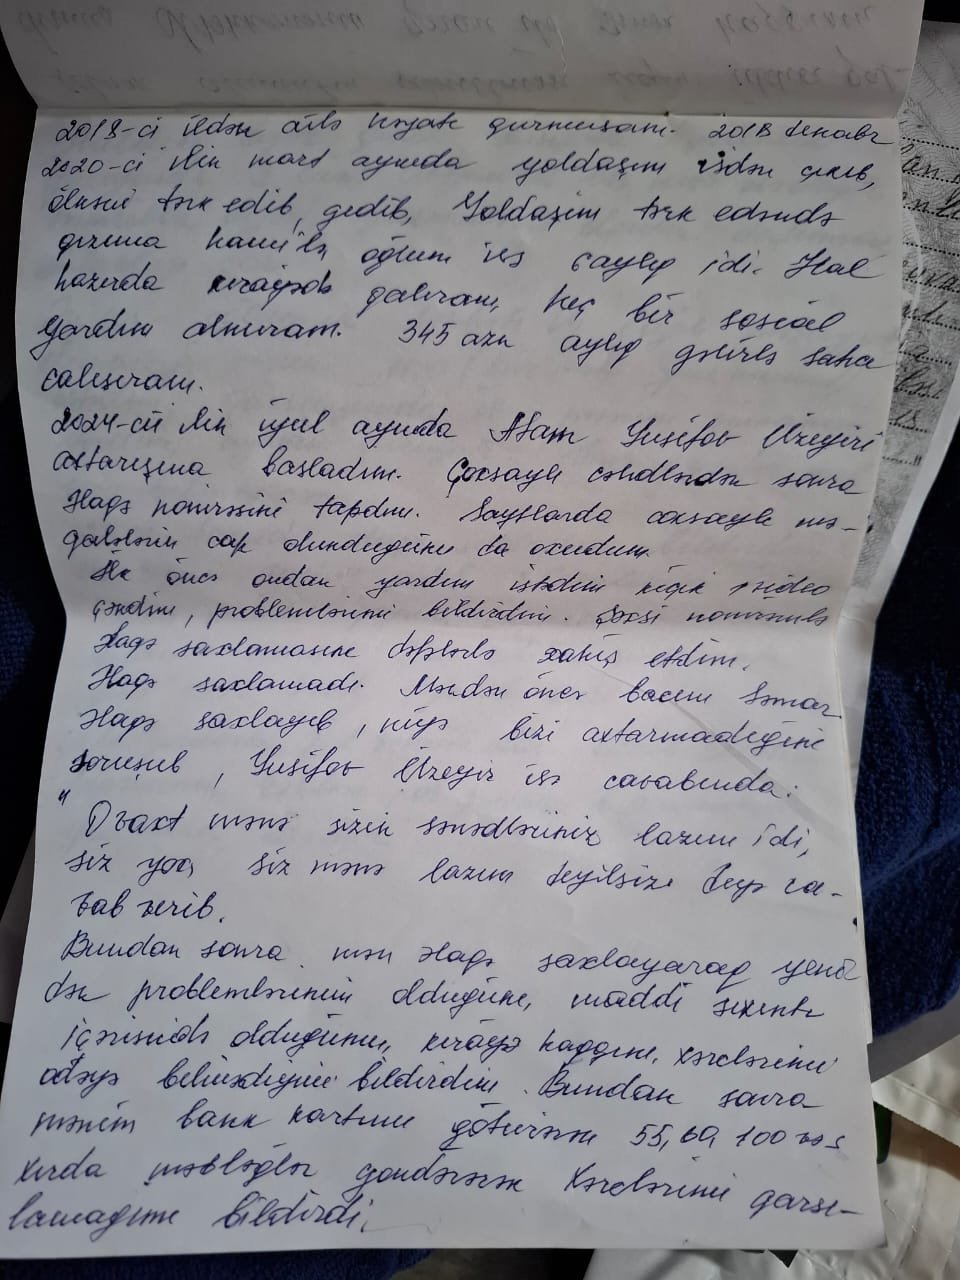 2018-ci ildən ailə həyatı qurmuşam. 2018 dekabr
2020-ci ilin mart ayında yoldaşım evdən çıxıb,
ölkəni tərk edib, gedib, Yoldaşım tərk edəndə
qızıma hamilə, oğlum isə aylıq idi. Hal
hazırda kirayədə qalıram, heç bir sosial
yardım almıram. 345 azn aylıq gəlirlə saha
calışıram.
2024-cü ilin iyul ayında Atam Yusifov Üzeyiri
axtarışına başladım. Çoxsaylı cəhdlərdən sonra
Əlaqə nömrəsini tapdım. Saytlarda coxsaylı mə-
qalələrin cap olunduğunu da oxudum
İlk öncə ondan yardım istədim kiçik video
çəkdim, problemlərimi bildirdim. Şəxsi nömrəmlə
Əlaqə saxlamasını dəfələrlə xahiş etdim.
Əlaqə saxlamadı. Məndən öncə bacım Səmar
Əlaqə saxlayıb, niyə bizi axtarmadığını
soruşub, Yusifov Üzeyir isə cavabında:
"O vaxt mənə sizin sənədləriniz lazım idi,
siz yox, siz mənə lazım deyilsiz deyə ca-
vab verib.
Bundan sonra mən əlaqə saxlayaraq yeni
dən problemlərimin olduğunu, maddi sıxıntı
içərisində olduğumu, kirayə haqqını, xərclərimi
ödəyə bilmədiyimi bildirdim. Bundan sonra
mənim bank kartımı götürərək 55, 60, 100 və s
xırda məbləğlər göndərərək xərclərimi qarşı-
lamağımı bildirdi.